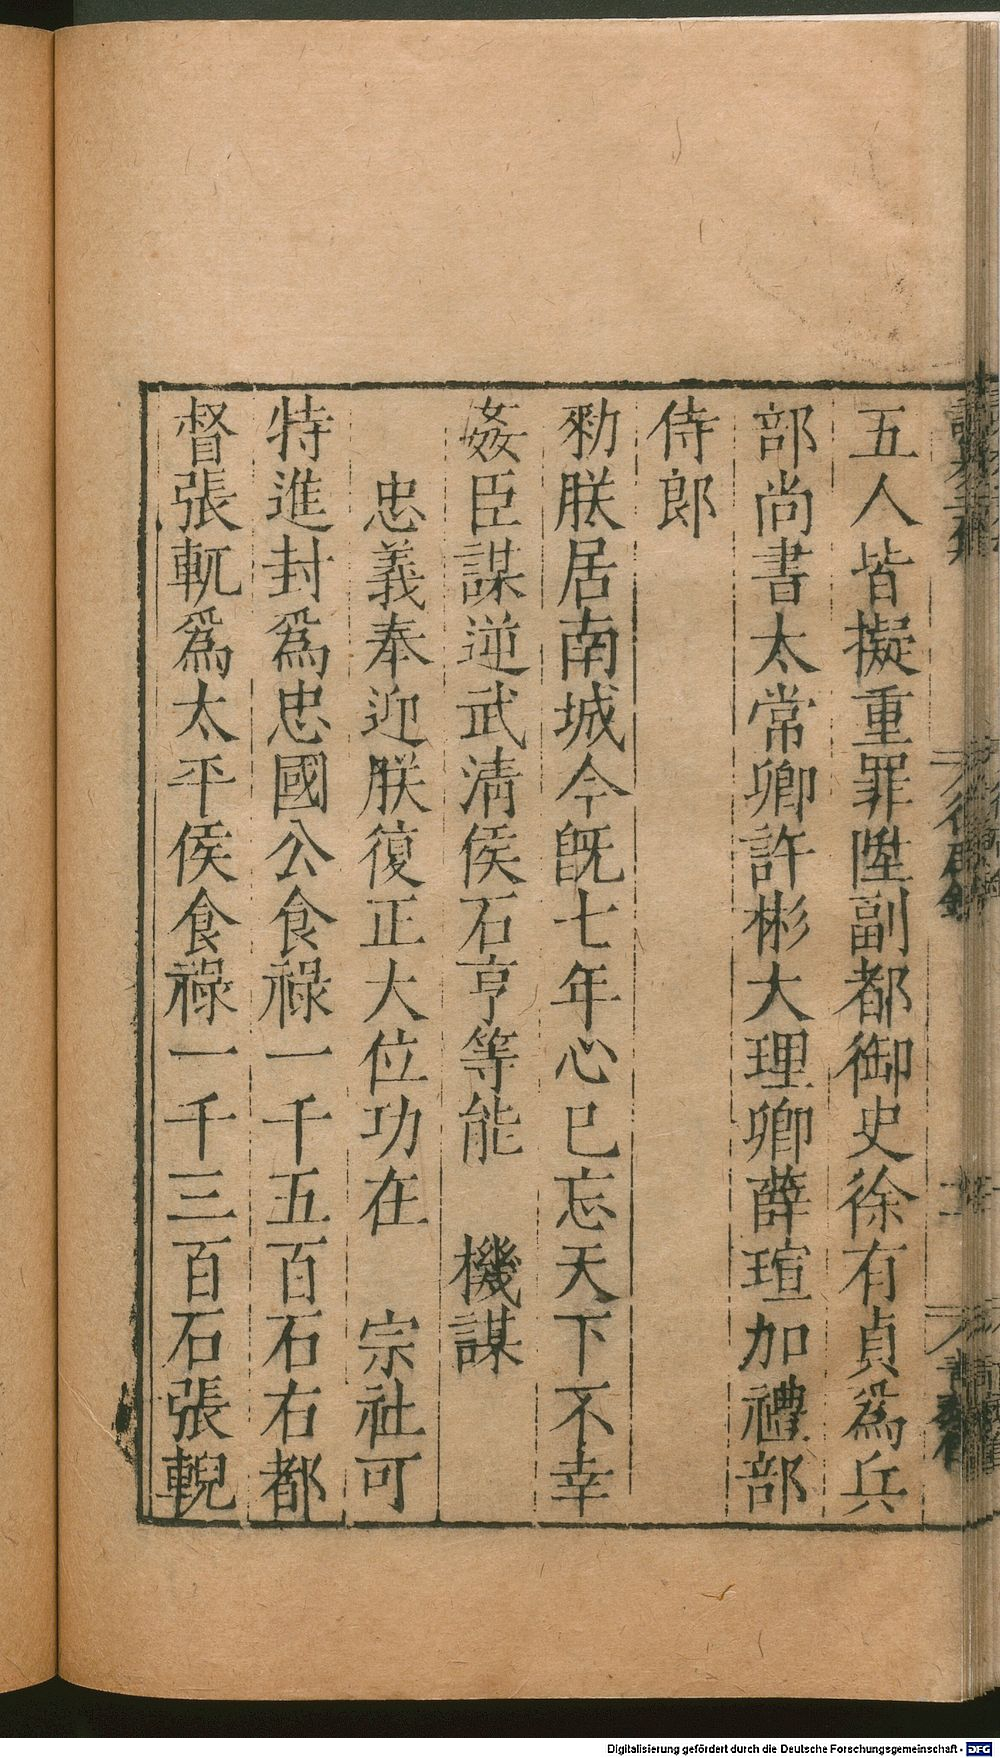 五人皆擬重罪陞副都御史徐有貞爲兵
部尚書太常卿許彬大理卿薛瑄加禮部
侍郎
勑朕居南城今旣七年心已忘天下不幸
姦臣謀逆武淸侯石亨等能　機謀
忠義奉迎朕復正大位功在　宗社可
特進封爲忠國公食祿一千五百石右都
督張軏爲太平侯食祿一千三百石張輗
Digitalisierung gefördert durch die Deutsche Forschungsgemeinschaft - DFG